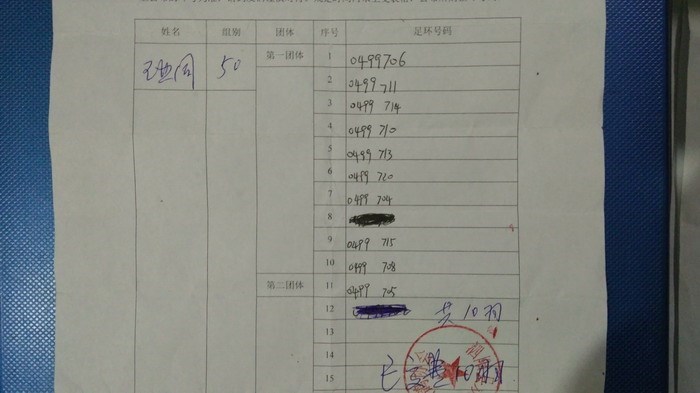 姓名 组别 团体 序号 足环号码
50 第一团体 1 0499706
2 0499 711
3 0499 714
4 0499 710
5 0499 713
6 0499 720
7 0499 704
8
9 0499 715
10 0499 708
第二团体 11 0499 705
12 共10羽
13
14
15